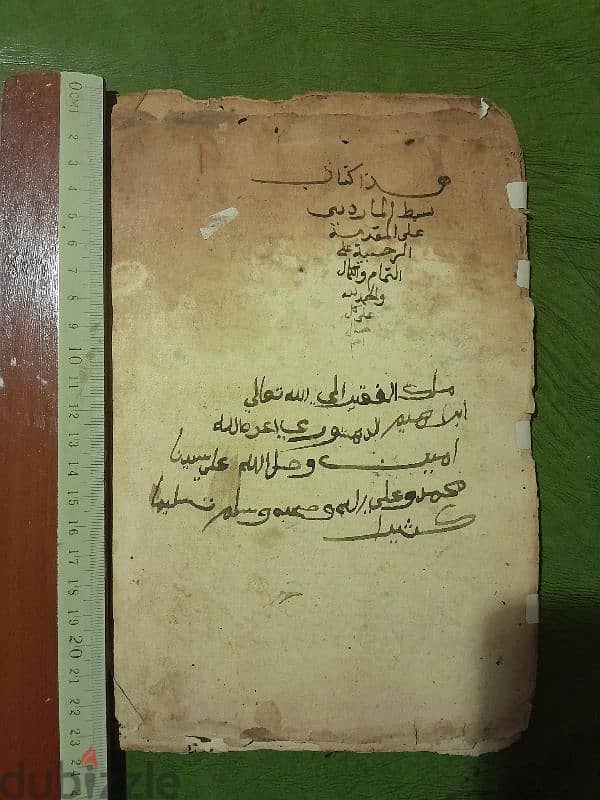 هذا كتاب
سبط المارديني
على المقدمة
الرحبية على
التمام والكمال
والحمد لله
على كل
حال
ملك الفقير الى الله تعالى
ابراهيم الدمنهوري اعزه الله
امين وصلى الله على سيدنا
محمد وعلى اله وصحبه وسلم تسليما
كثيرا
0CM 1 2 3 4 5 6 7 8 9 10 11 12 13 14 15 16 17 18 19 20 21 22 23 24
dubizzle